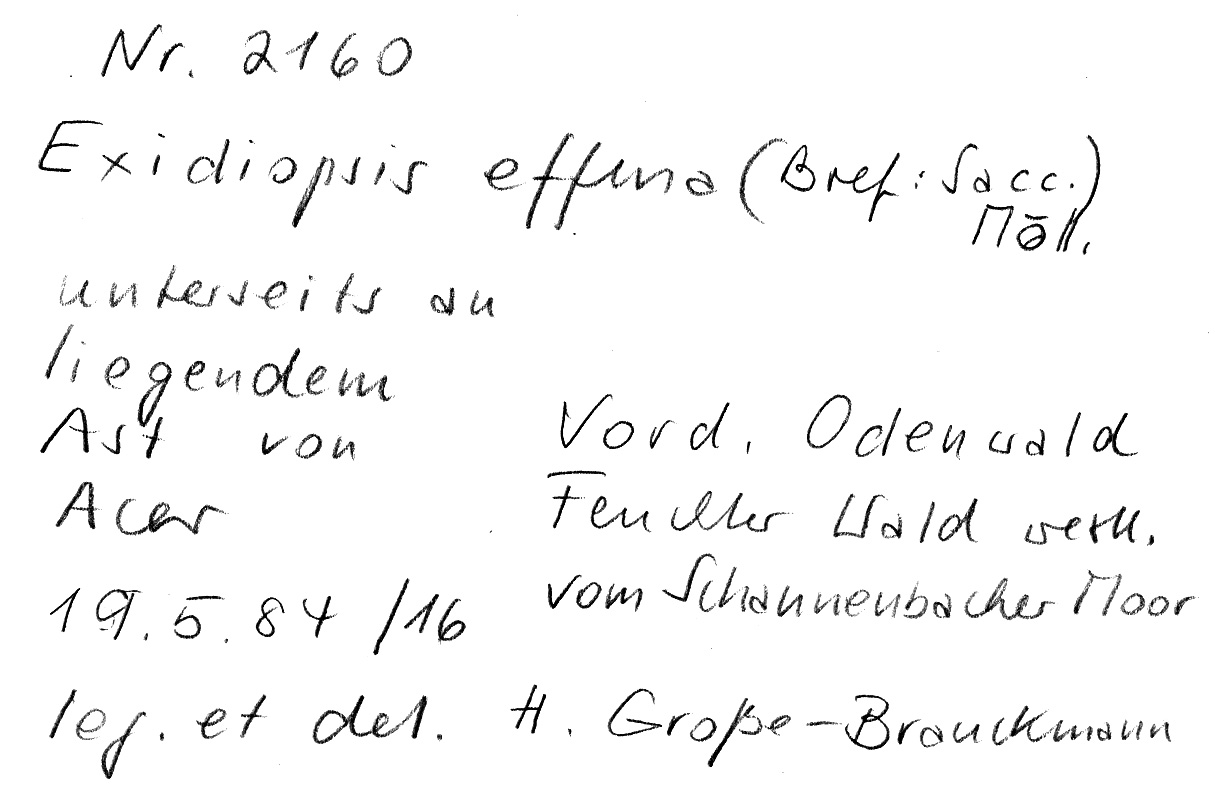 Nr. 2160
Exidiopsis effusa (Bref: Sacc.)
Möll.
unterseits an
liegendem
Ast von
Acer
19.5.84 /16
Vord. Odenwald
Feuchter Wald westl.
vom Schannenbacher Moor
leg. et det. H. Große-Brauckmann